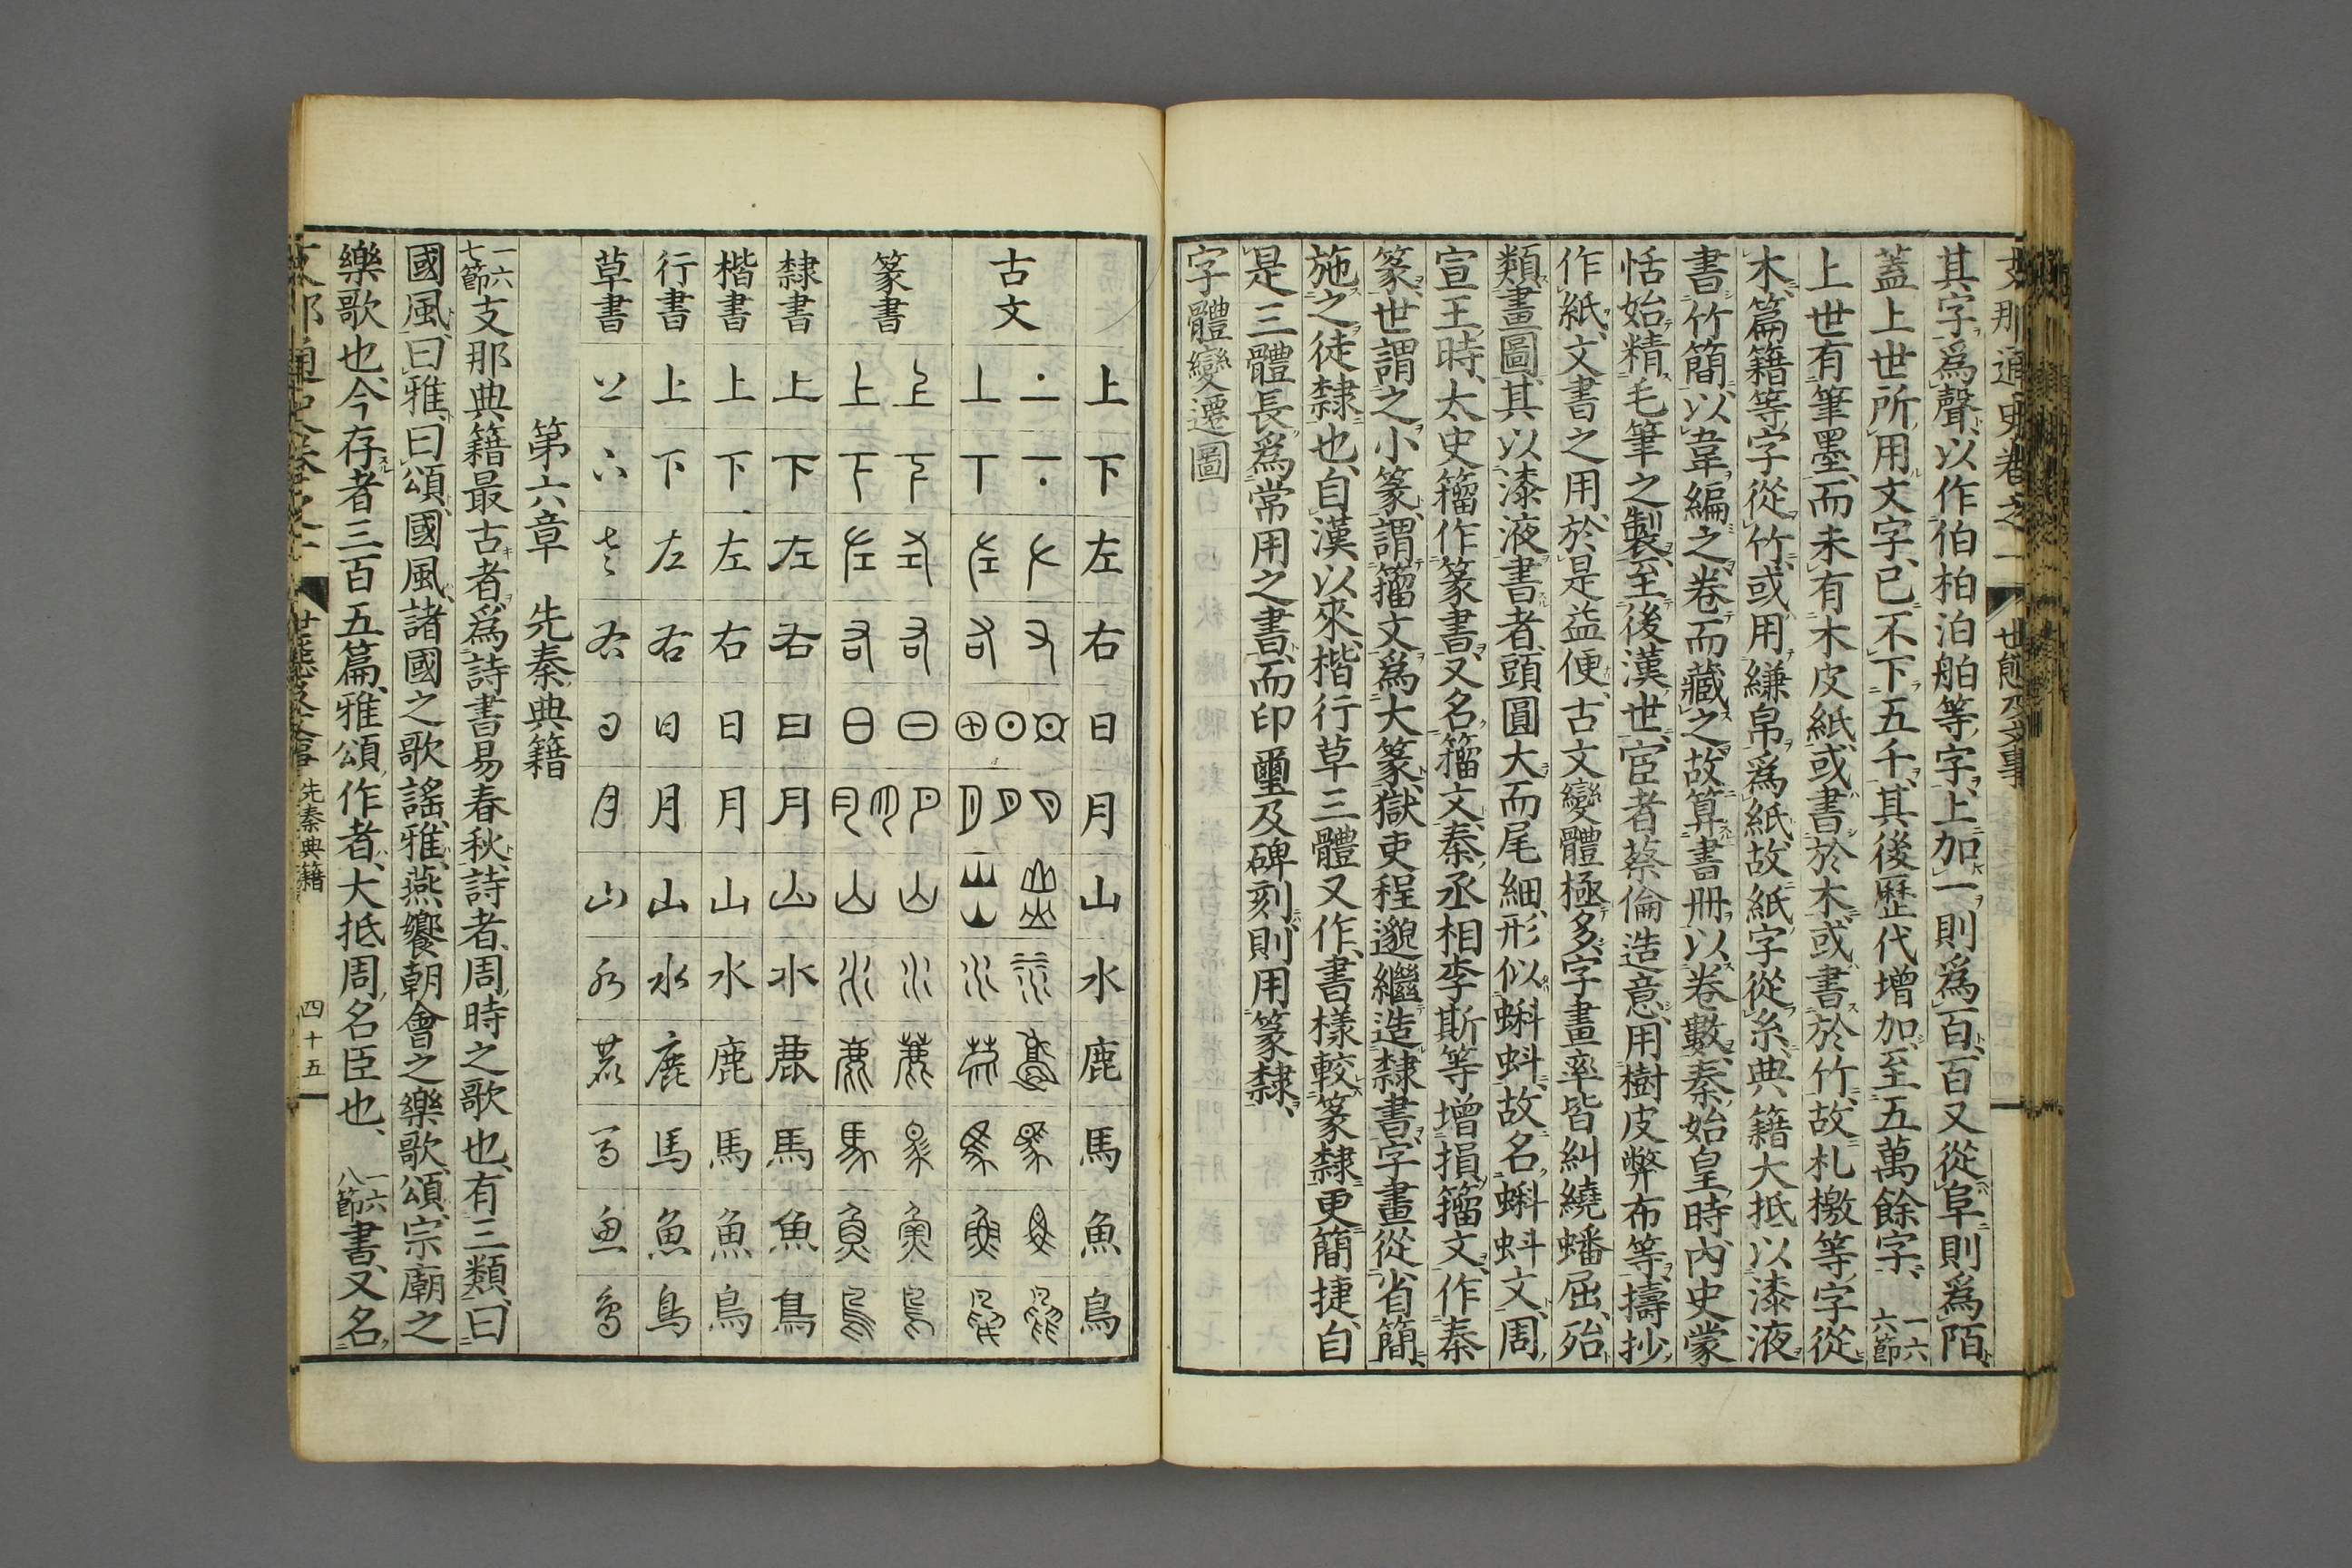 支那通史卷之一 世態及文事
其字爲聲、以作伯柏泊舶等字、上加一則爲百、百又從阜則爲陌、
蓋上世所用文字、已不下五千、其後歷代增加、至五萬餘字、 一六六節
上世有筆墨、而未有木皮紙、或書於木、或書於竹、故札檄等字從
木、篇籍等字從竹、或用縑帛爲紙、故紙字從糸、典籍大抵以漆液
書竹簡、以韋編之、卷而藏之、故算書册以卷數、秦始皇時、內史蒙
恬始精毛筆之製、至後漢世、宦者蔡倫造意、用樹皮弊布等、擣抄
作紙、文書之用、於是益便、古文變體極多、字畫率皆糾繞蟠屈、殆
類畫圖、其以漆液書者、頭圓大而尾細、形似蝌蚪、故名蝌蚪文、周
宣王時、太史籀作篆書、又名籀文、秦丞相李斯等增損籀文、作秦
篆、世謂之小篆、謂籀文爲大篆、獄吏程邈繼造隸書、字畫從省簡、
施之徒隸也、自漢以來、楷行草三體又作、書樣較篆隸更簡捷、自
是三體長爲常用之書、而印璽及碑刻、則用篆隸、
字體變遷圖
上下左右日月山水鹿馬魚鳥
古文
篆書
隸書 上下左右日月山水鹿馬魚鳥
楷書 上下左右日月山水鹿馬魚鳥
行書 上下左右日月山水鹿馬魚鳥
草書 上下左右日月山水鹿馬魚鳥
第六章 先秦典籍
一六七節 支那典籍最古者、爲詩書易春秋、詩者、周時之歌也、有三類、曰
國風、曰雅、曰頌、國風、諸國之歌謠、雅、燕饗朝會之樂歌、頌、宗廟之
樂歌也、今存者三百五篇、雅頌作者、大抵周名臣也、 一六八節 書、又名
支那通史卷之一 世態及文事 先秦典籍 四十五